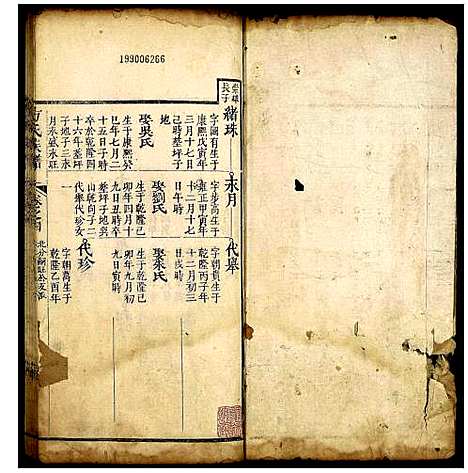 199006266
長子
緒珠
字國有生于
康熙戊寅年
三月十七日
己時墓坪子
地
娶吳氏
生于康熙癸
巳年七月二
十五日子時
卒於乾隆四
十六年墓坪
子地子三水
月水盛水旺
永月
字步高生于
雍正甲寅年
十二月十七
日午時
娶劉氏
生于乾隆己
卯年四月十
九日丑時卒
墓坪子地艮
山乾向子二
代舉代珍女
一
代舉
字朝貴生于
乾隆丙子年
十二月初三
日戌時
娶朱氏
生于乾隆己
卯年九月初
九日寅時
代珍
字朝萬生于
乾隆乙酉年
氏族譜